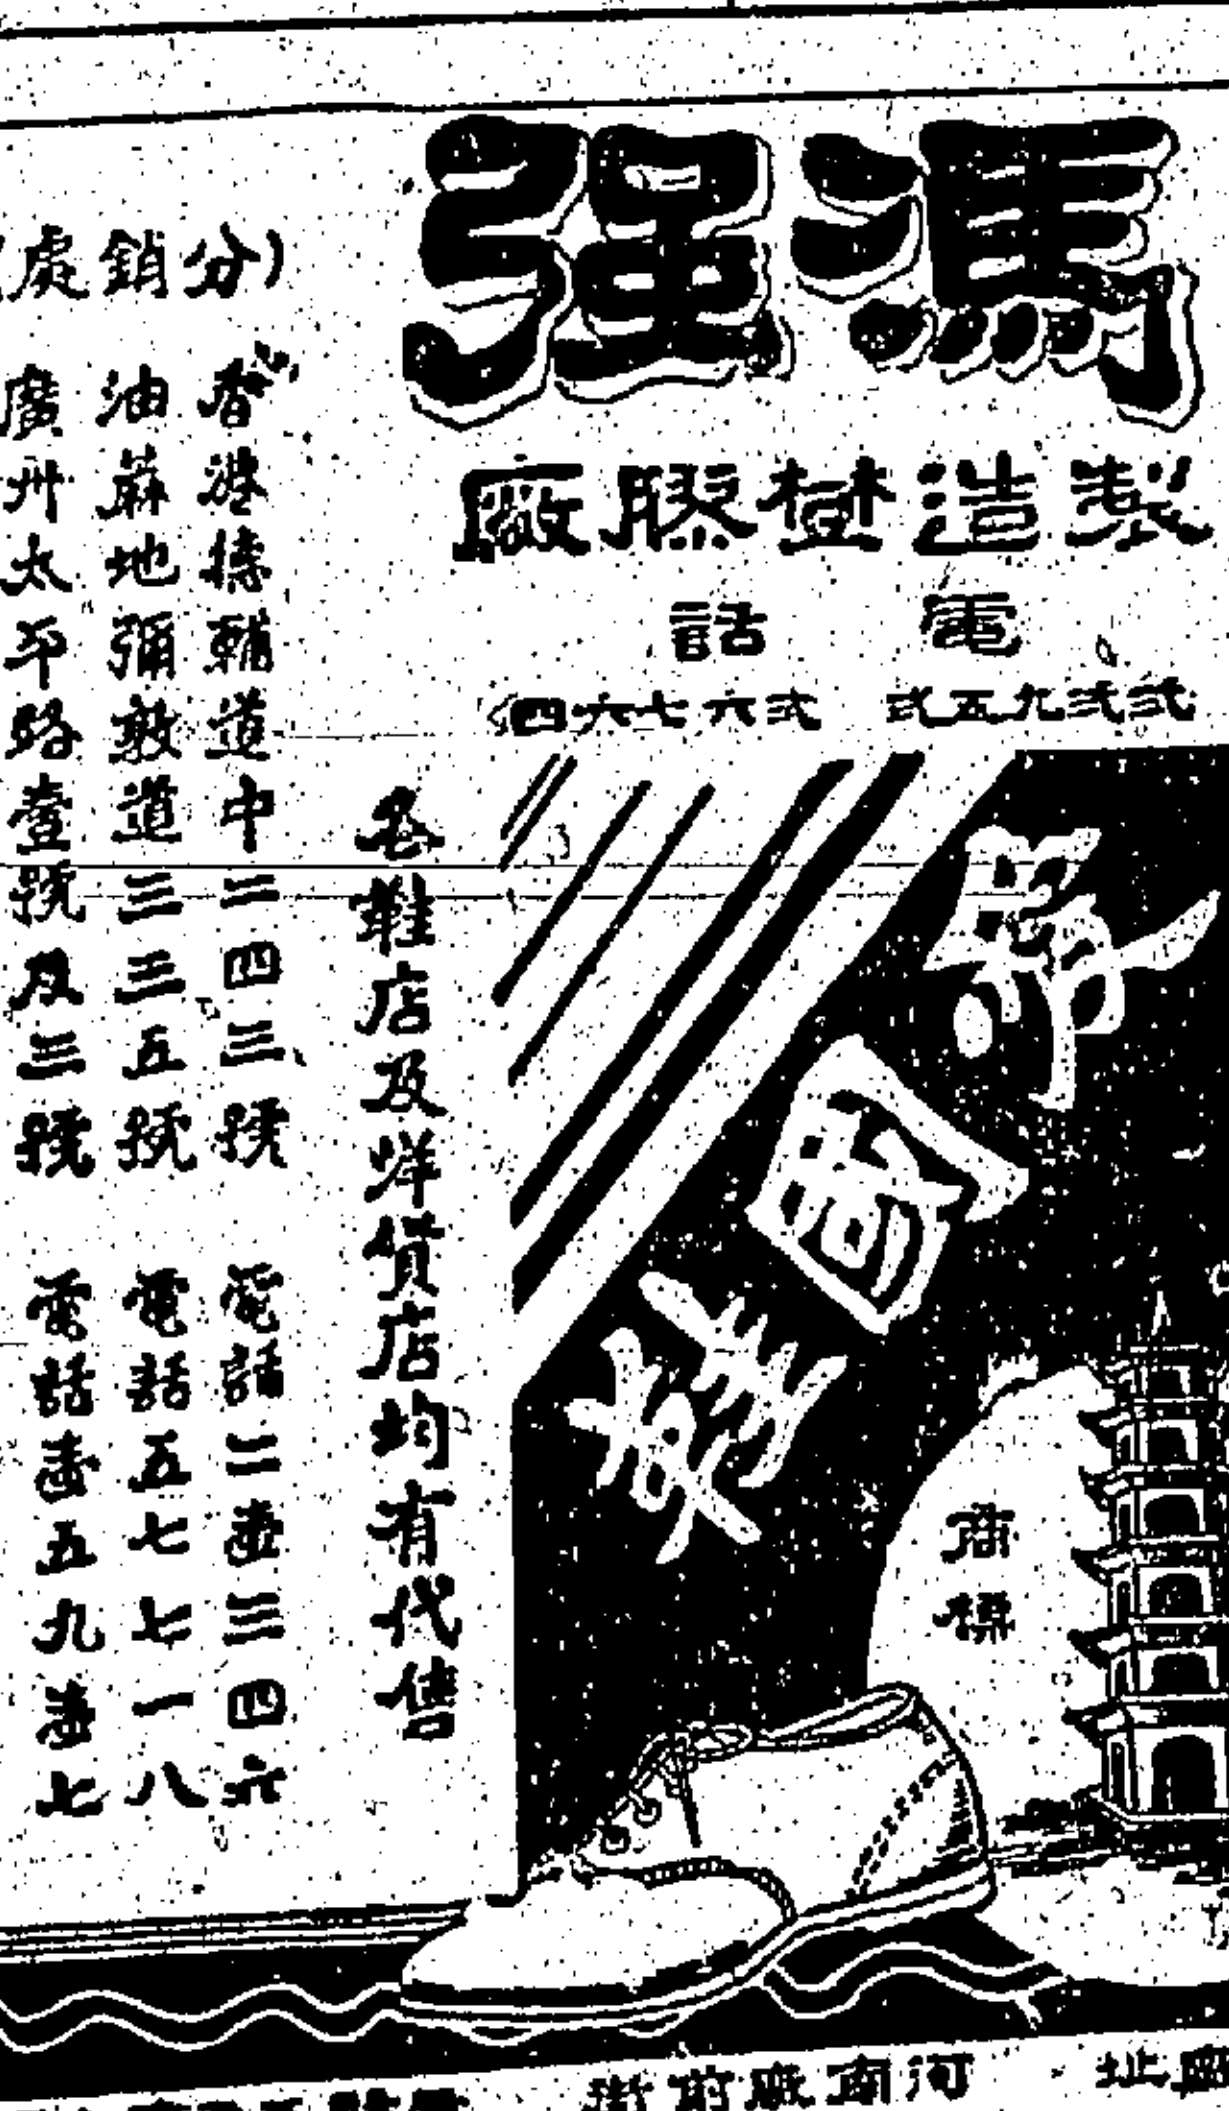 馮强
製造樹膠廠
電話
弍弍九五弍 弍六七六四
國鞋
商標
各鞋店及洋貨店均有代售
(分銷處
香港德輔道中二四三號 電話二壹三四六
油蔴地彌敦道三三五號 電話五七七一八
廣州太平路壹號及三號 電話壹五九壹七
址 河南廠前街